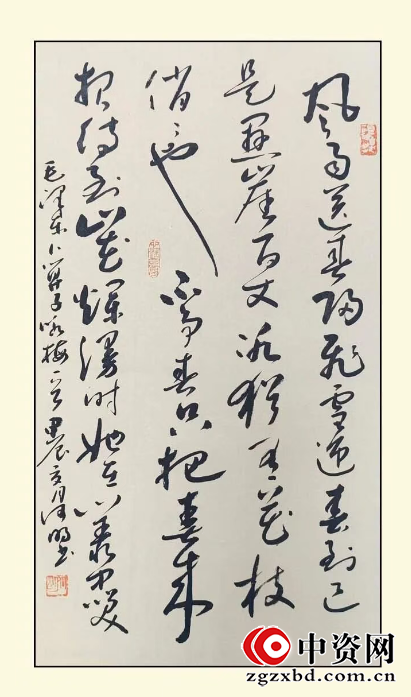 风雨送春归飞雪迎春到已
是悬崖百丈冰犹有花枝
俏〻也不争春只把春来
报待到山花烂漫时她在丛中笑
毛泽东卜算子咏梅一首甲辰 月 书
中资网
zgzxbd.com.cn